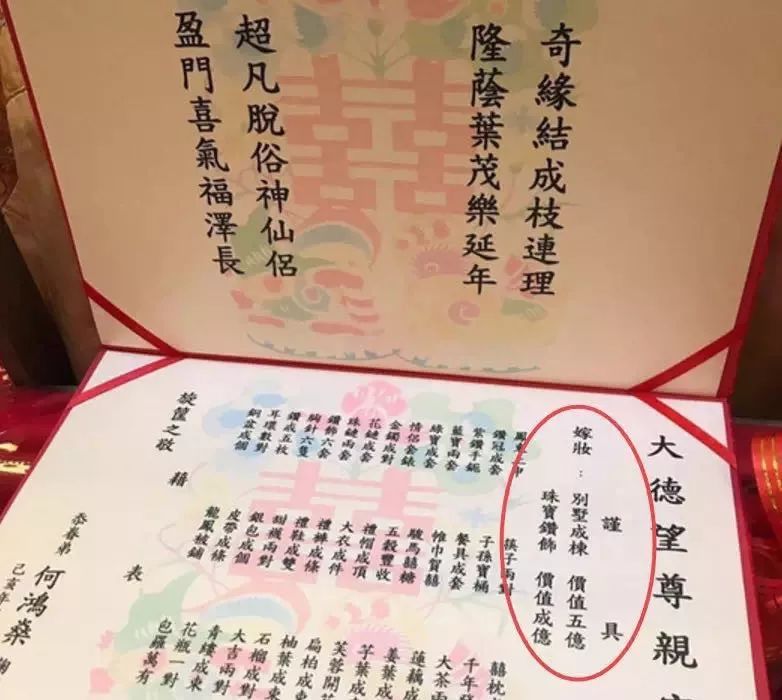 奇緣結成枝連理
隆蔭葉茂樂延年
超凡脫俗神仙侶
盈門喜氣福澤長
大德望尊親
謹具
嫁妝：別墅成棟 價值五億
珠寶鑽飾 價值成億
筷子兩對
鑽冠成套
子孫寶桶
囍枕
紫鑽手鈪
餐具成套
千年
藍寶兩套
帷巾賀囍
大茶
綠寶成套
駿馬囍糖
蓮藕成
情侶金錶
五穀豐收
姜葉成
金鐲成對
禮帽成頂
芋葉成
花鏈成套
大衣成件
芙蓉開花
珠鏈兩套
禮褲成條
扁柏成束
鑽飾六套
禮鞋成雙
柚葉成束
胸針六隻
甜襪兩對
石榴成對
鑽戒五枚
銀包成個
大吉兩對
耳環數對
皮帶成條
青縷成束
銅盆成個
龍鳳被鋪
花瓶一對
包羅萬有
旋筐之敬 藉 表
忝眷弟 何鴻燊
己亥年